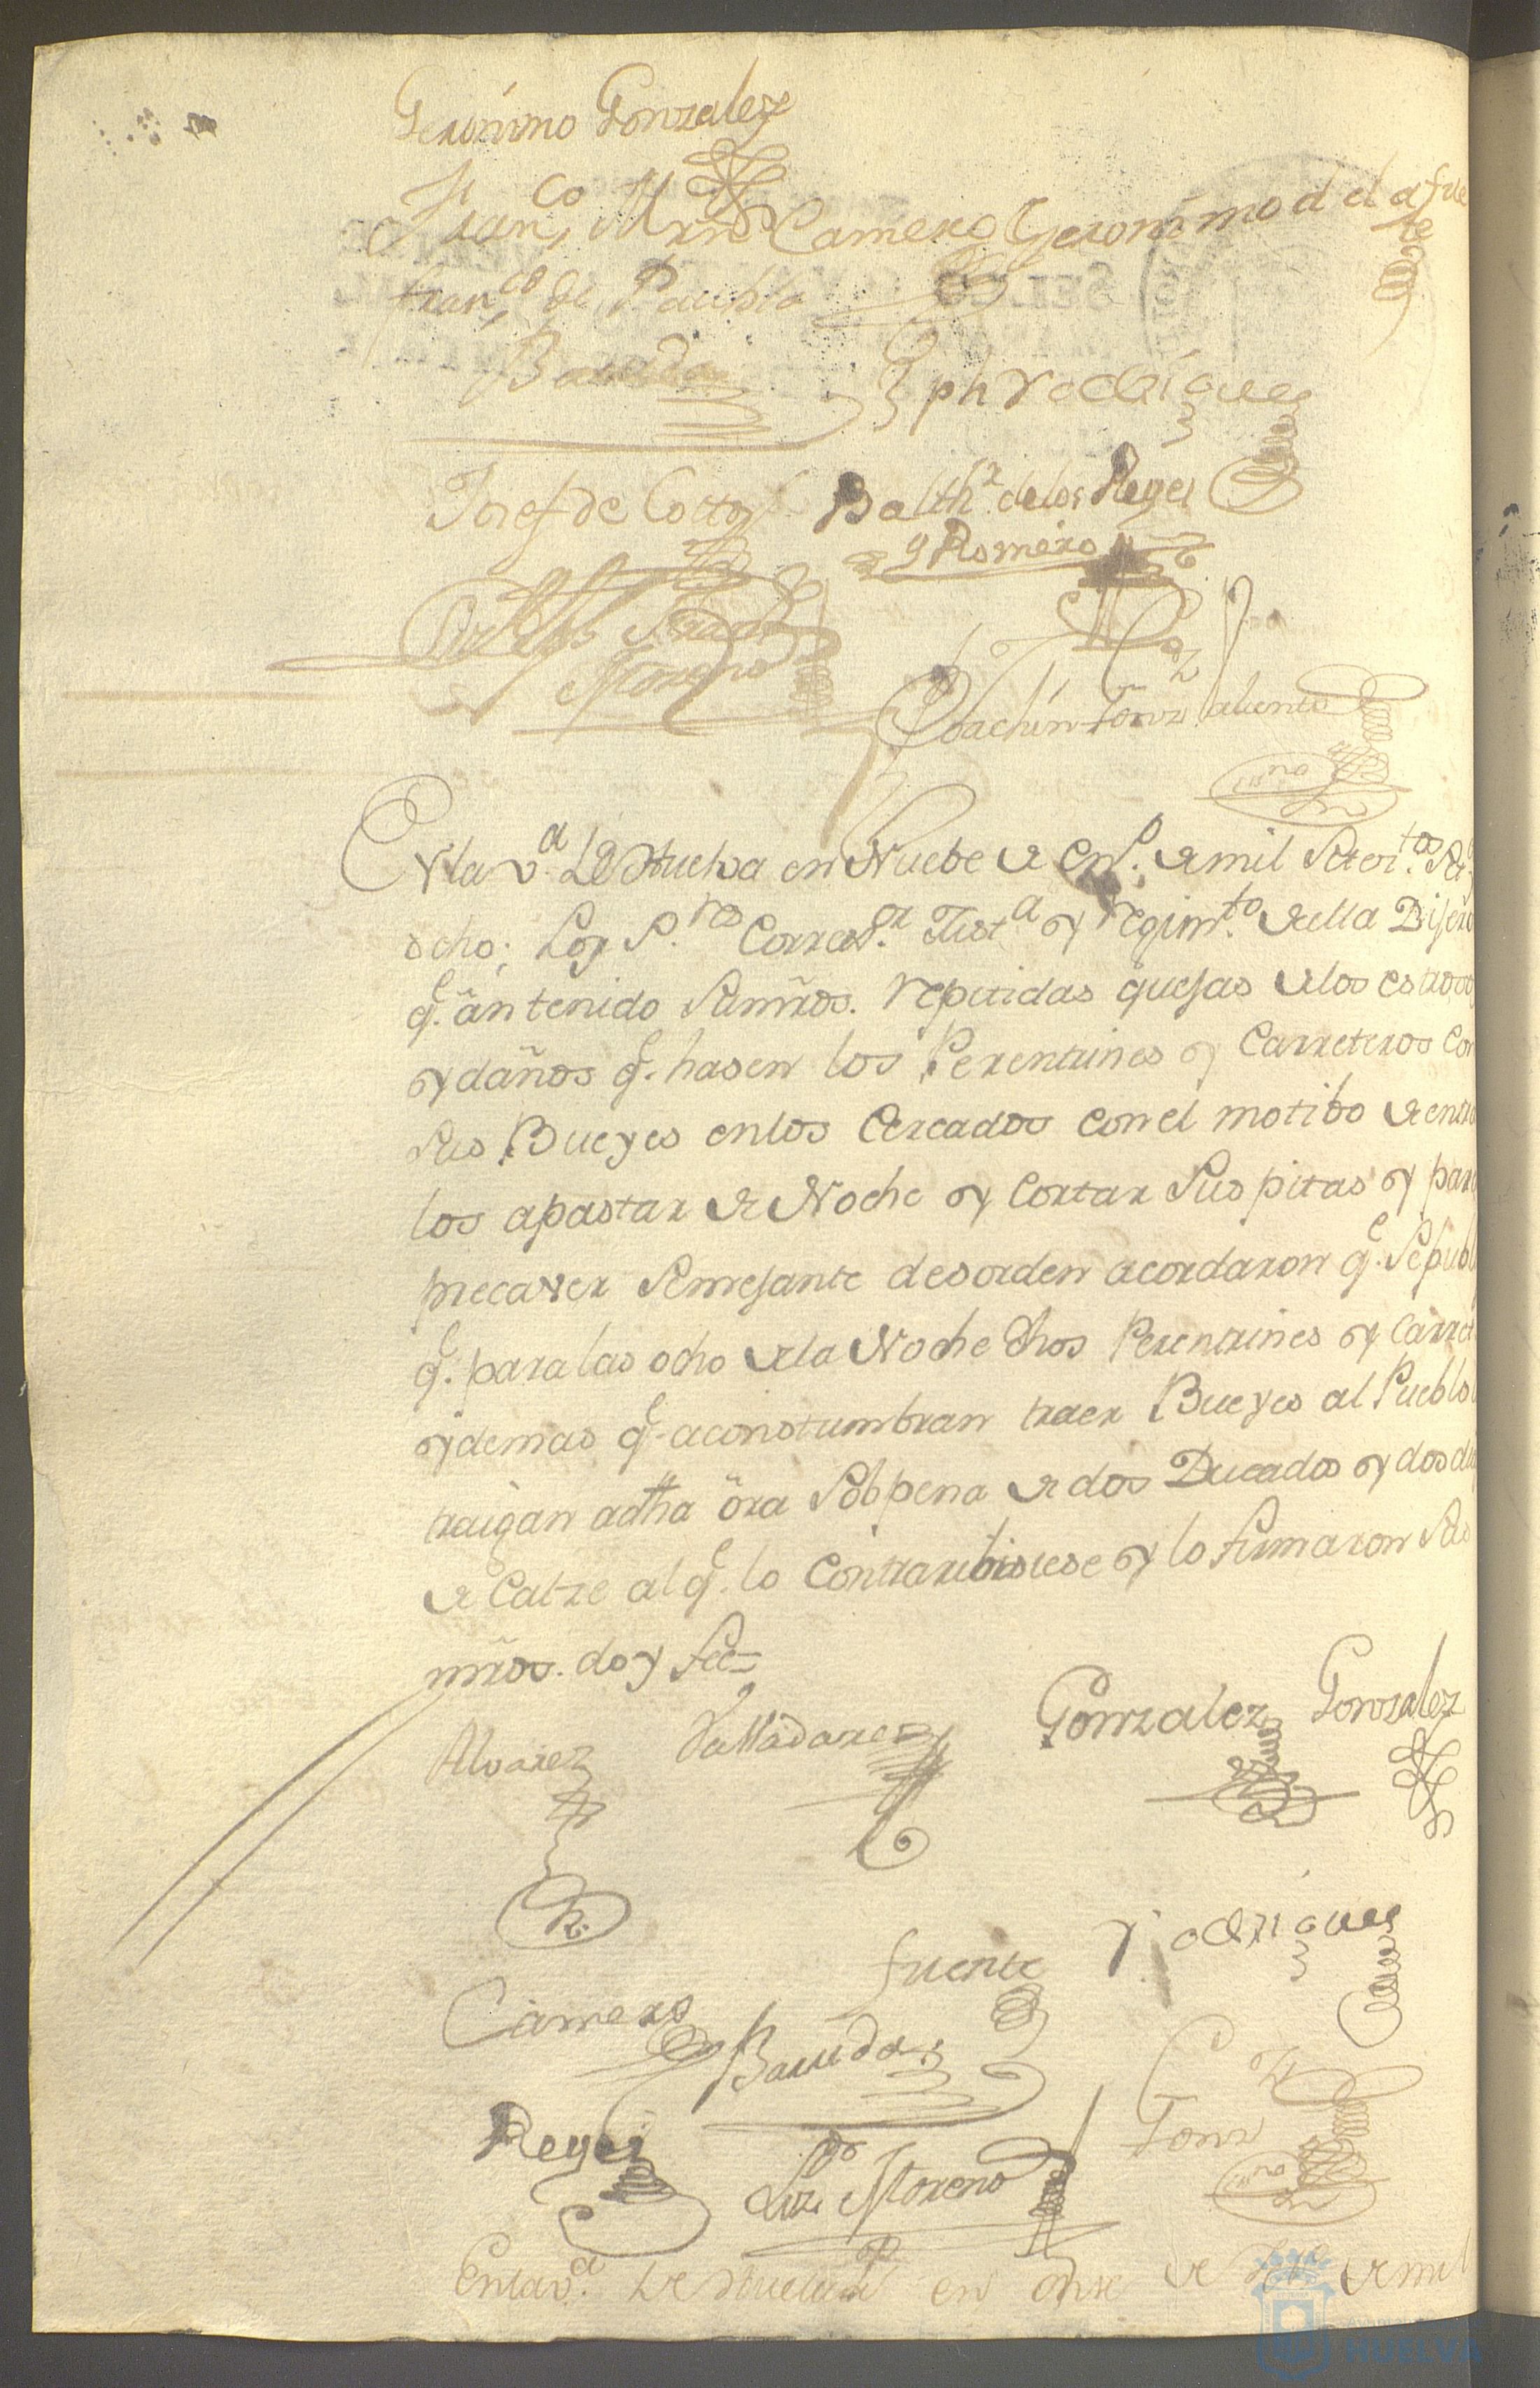 Geronimo Gonzalez
Fran,co Mrn Camero Geronimo d el a fue
te
fran,co de Paula
Barreda
Jph rodrigues
Josef de Cotto Balthr. de los Reyes
y Romero
Moreno
Joachin Gonz
ssno
En la va. de Huelva en Nuebe de En.o de mil Setezi.tos
ocho; Los S.res Corred.or Just.a y regim.to de ella Dijero
q.e an tenido Sumrños. repetidas quejas de los estroso
y daños q.e hasen los Perentrines y Carreteros con
sus Bueyes en los Cercados con el motibo de entra
los apastar de Noche y Cortar sus pitas y para
precaver Semejante desorden acordaron q.e Se publi
q.e para las ocho de la Noche dhos Perentrines y Carrete
y demas q.e aconstumbran traer Bueyes al Pueblo
traigan adha ora Sobpena de dos Ducados y dos di
de Calze al q.e lo Contrario isiese y lo firmaron Sus
mrños. doy fee=
Alvarez Valladares Gonzalez Gonzalez
Camero fuente rodrigues
Barreda Cotto
Reyes Moreno Gonz
ssno
En la v.a de Huelva en onse de de mil
HUELVA